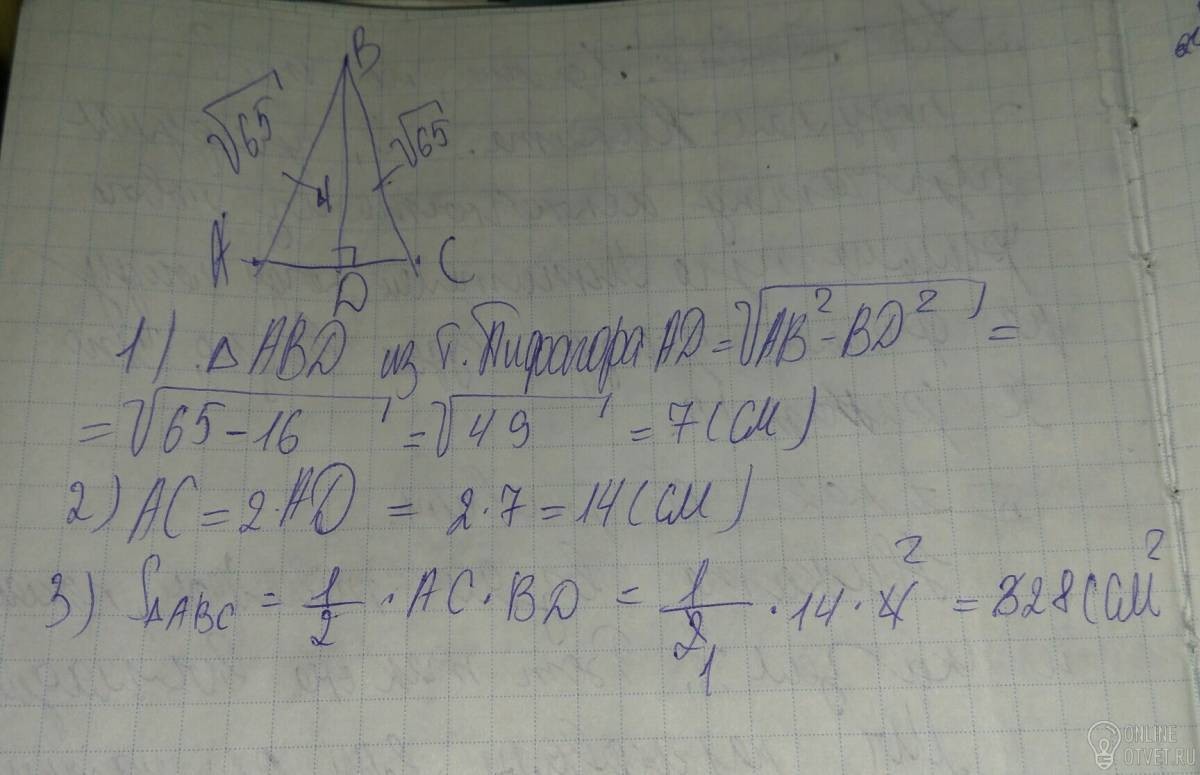 B
√65
√65
4
A
C
D
1) △ABD из т. Пифагора AD = √AB² - BD² =
= √65 - 16 = √49 = 7 (см)
2) AC = 2 · AD = 2 · 7 = 14 (см)
3) S△ABC = 1/2 · AC · BD = 1/2 1 · 14 · 4 2 = 28 (см²
ONLINE
OTVET.RU